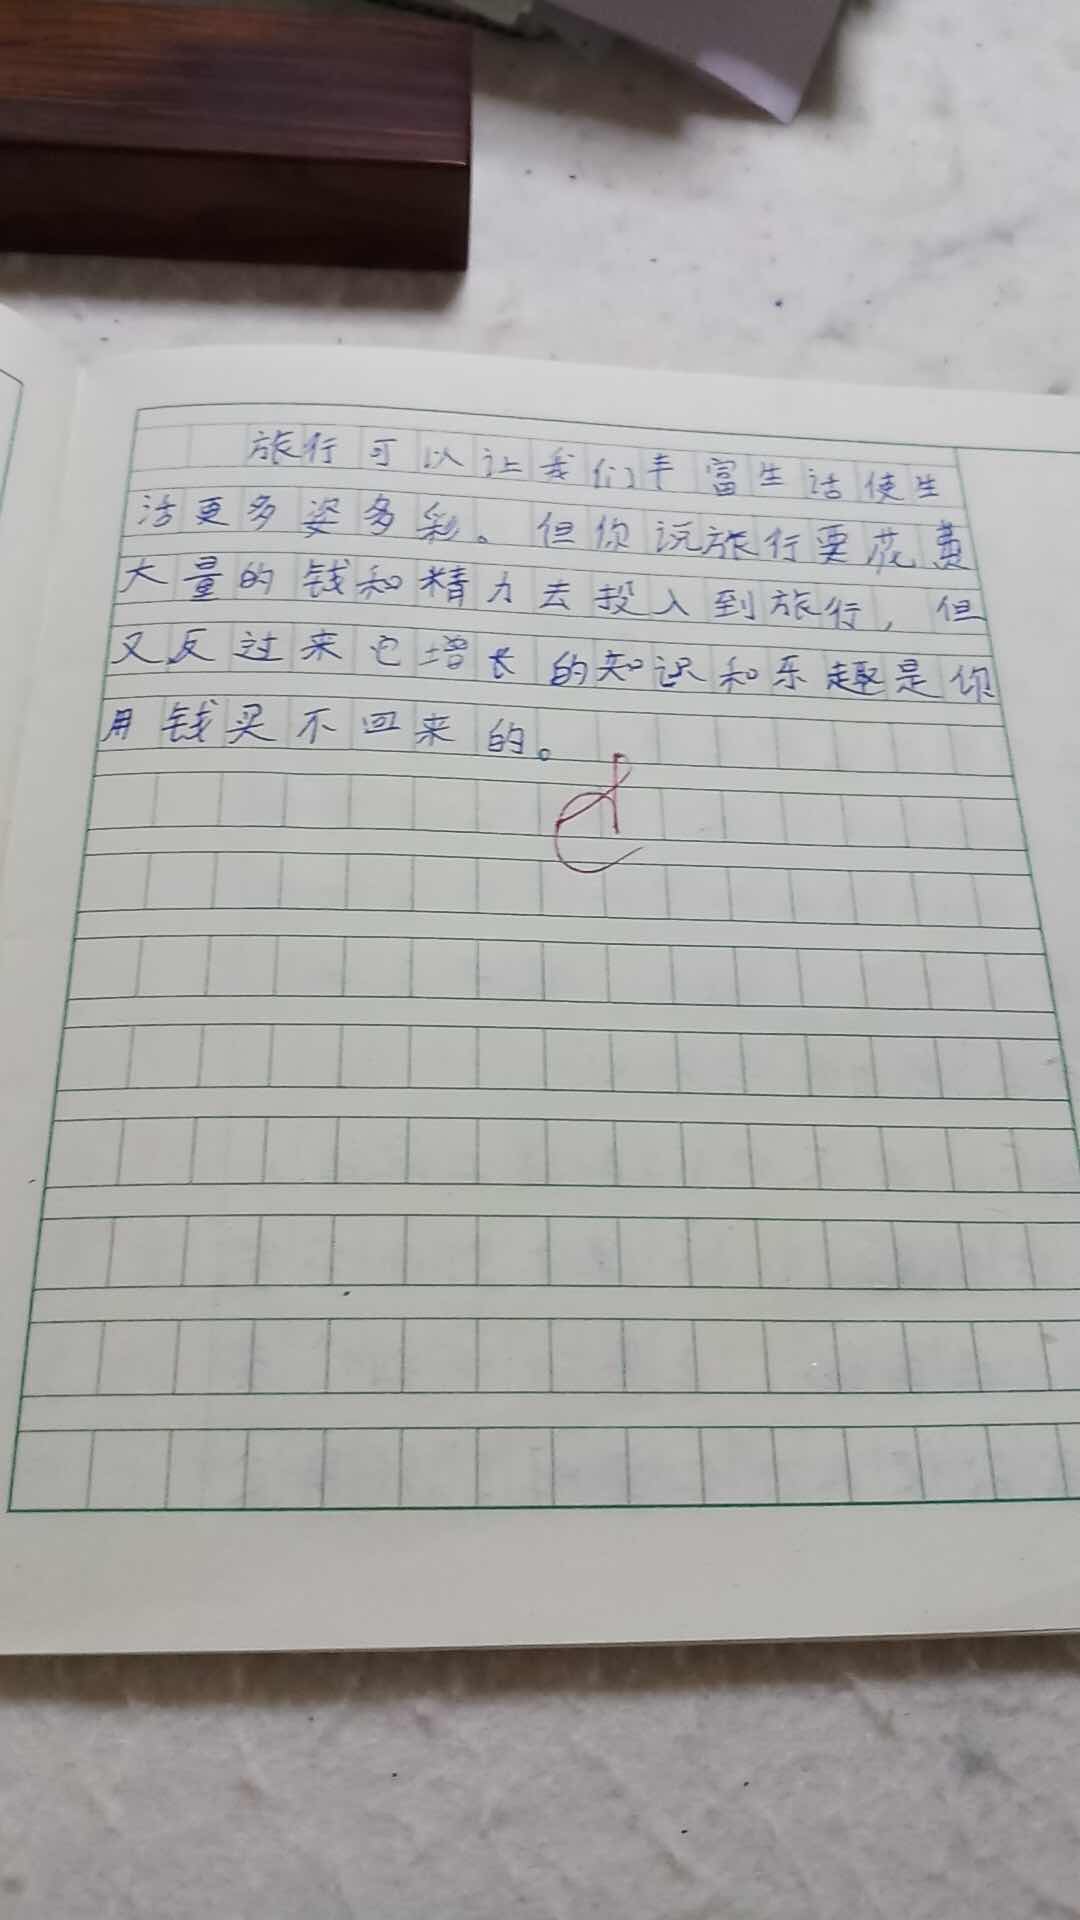 旅行可以让我们丰富生活使生
活更多姿多彩。但你说旅行要花费
大量的钱和精力去投入到旅行，但
又反过来它增长的知识和乐趣是你
用钱买不回来的。